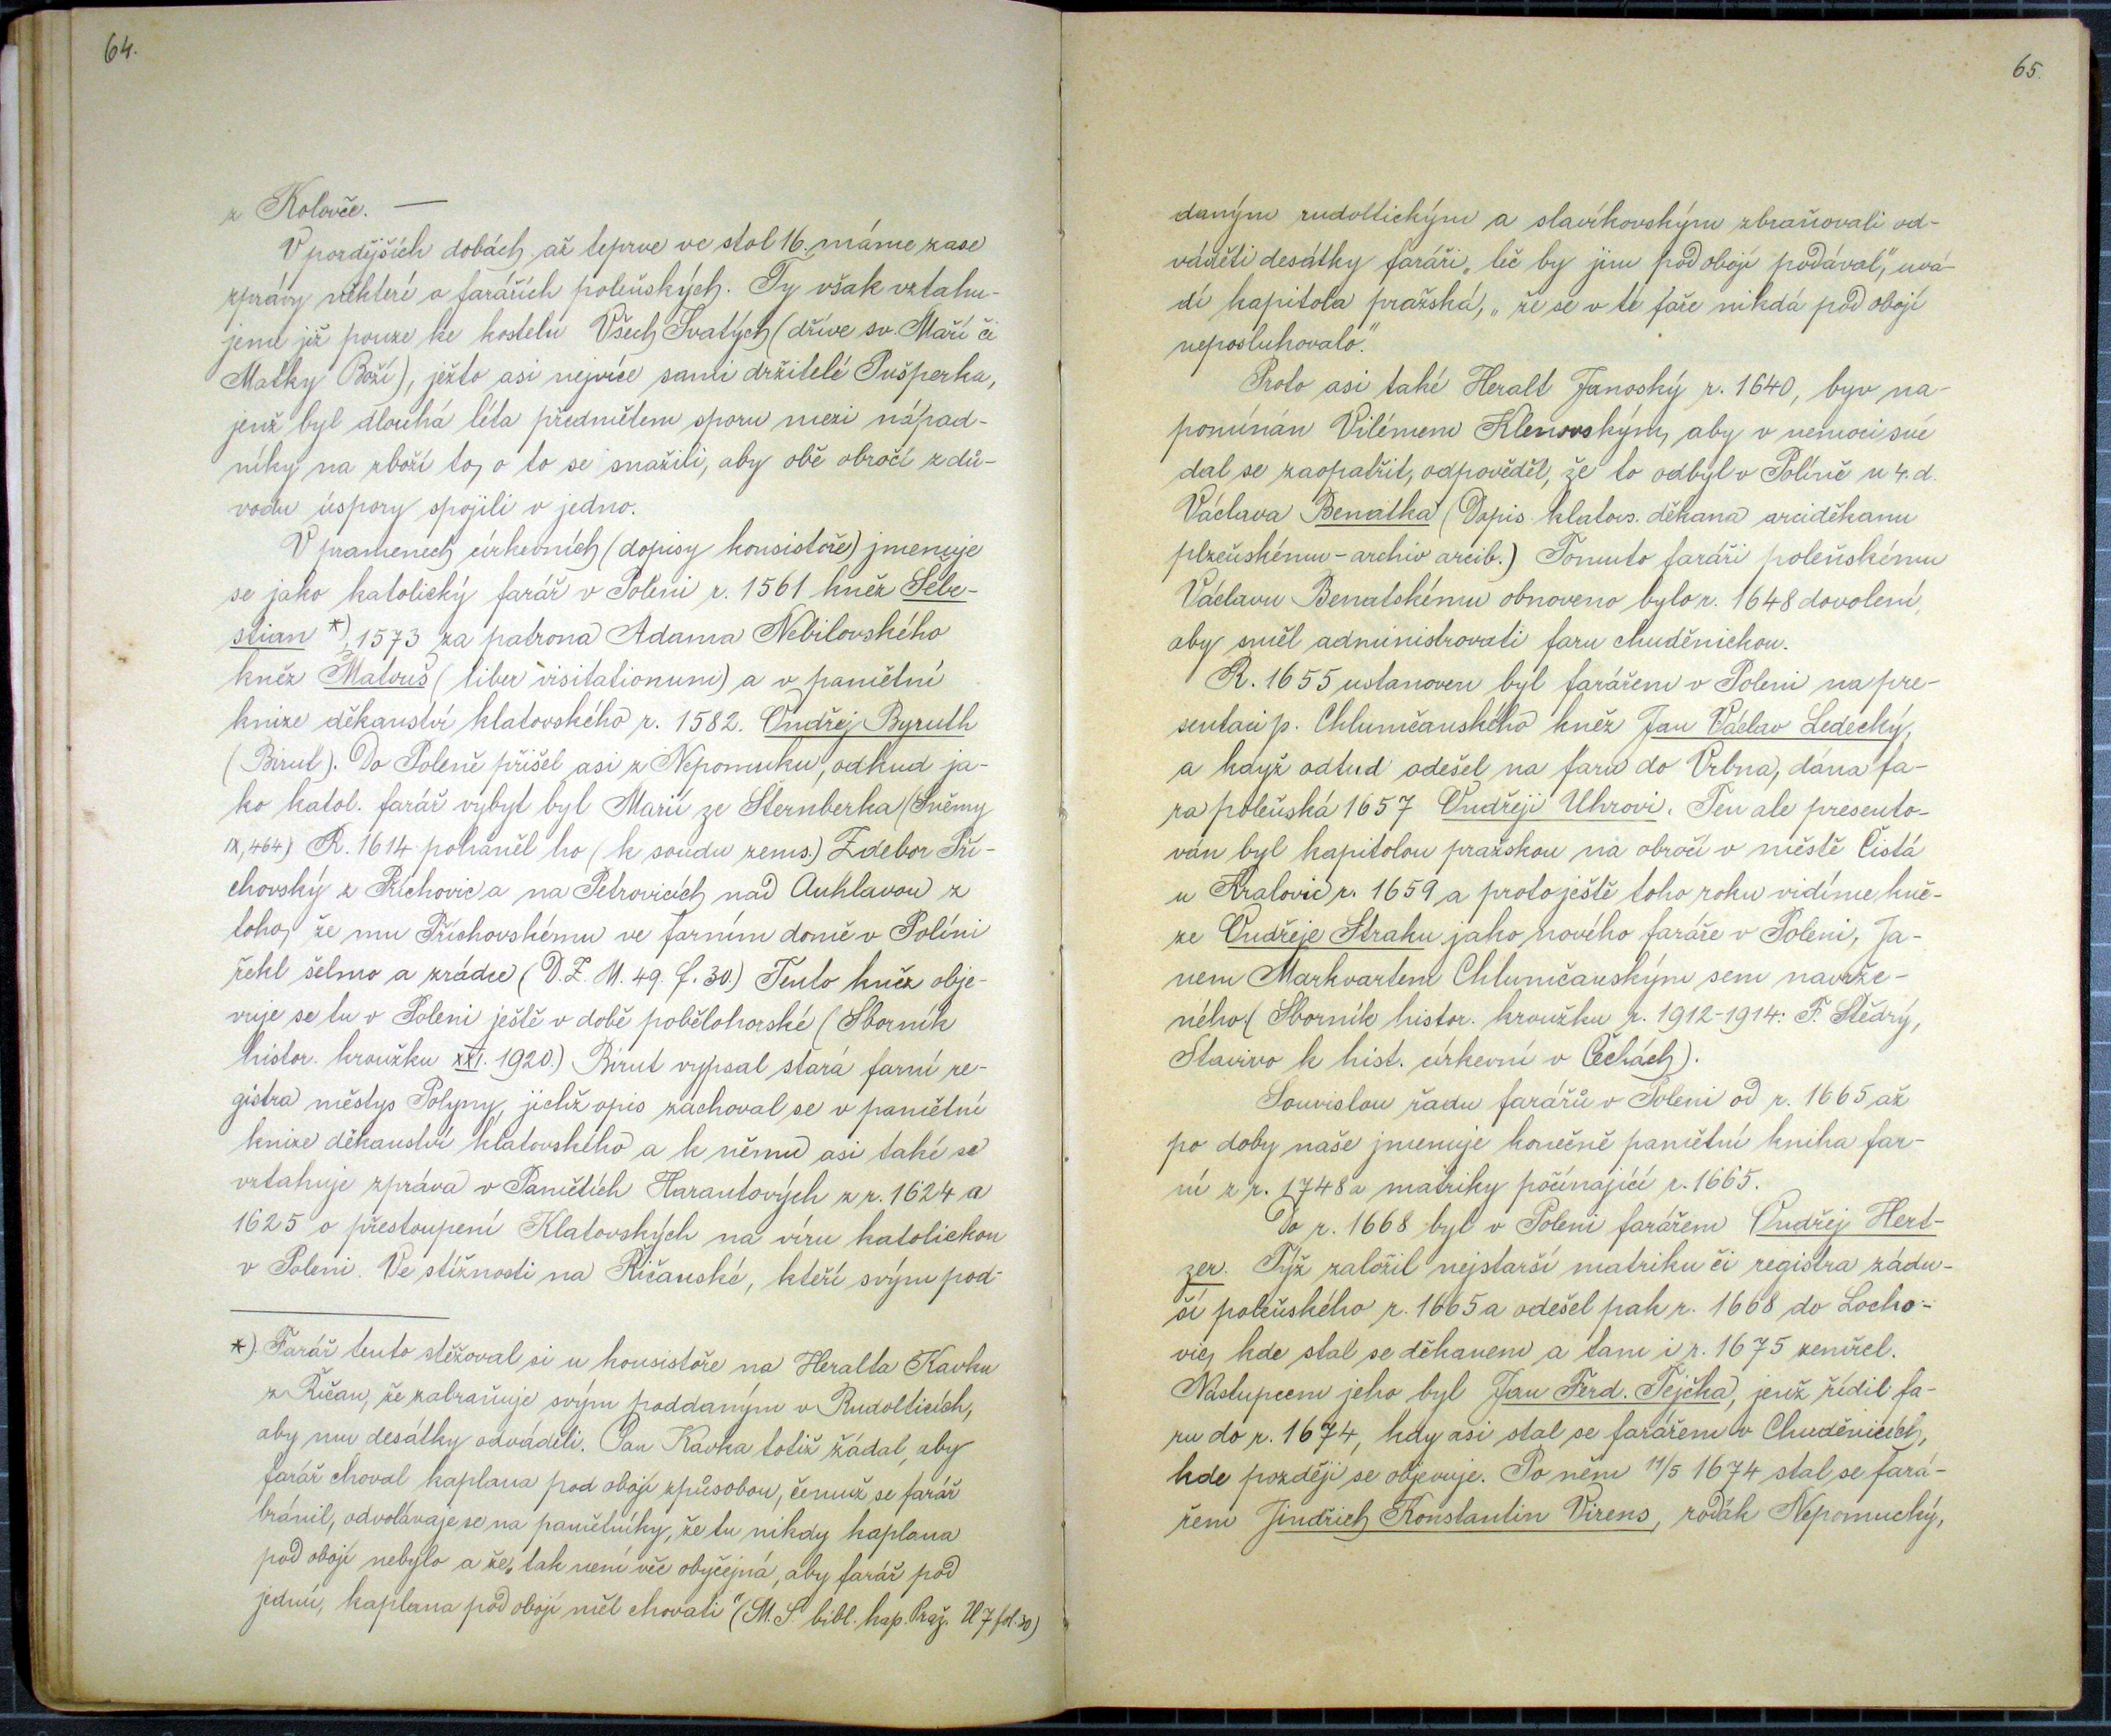 64.
z Kolovče. —
V pozdějších dobách až teprve ve stol 16. máme zase
zprávy některé o farářích poleňských. Ty však vztahu-
jeme již pouze ke kostelu Všech Svatých (dříve sv. Maří či
Matky Boží), ježto asi nejvíce sami držitelé Pušperka,
jenž byl dlouhá léta předmětem sporu mezi nápad-
níky na zboží to, o to se snažili, aby obě obročí z dů-
vodu úspory spojili v jedno.
V pramenech církevních (dopisy konsistoře) jmenuje
se jako katolický farář v Poleni r. 1561 kněz Sebe-
stian *), 1573 za patrona Adama Nebilovského
kněz Matouš (liber visitationum) a v pamětní
knize děkanství klatovského r. 1582. Ondřej Byruth
(Birut). Do Poleně přišel asi z Nepomuku, odkud ja-
ko katol. farář vybyt byl Marií ze Šternberka (Sněmy
IX, 464) R. 1614 poháněl ho (k soudu zems.) Zdebor Pří-
chovský z Příchovic a na Petrovicích nad Auhlavou z
toho, že mu Příchovskému ve farním domě v Políni
řekl šelmo a zrádce (D.Z. M. 49. f. 30.) Tento kněz obje-
vuje se tu v Poleni ještě v době pobělohorské (Sborník
histor. kroužku XXI. 1920.) Birut vypsal stará farní re-
gistra městys Polyny, jichž opis zachoval se v pamětní
knize děkanství klatovského a k němu asi také se
vztahuje zpráva v Pamětích Harantových z r. 1624 a
1625 o přestoupení Klatovských na víru katolickou
v Poleni. Ve stížnosti na Říčanské, kteří svým pod-
*) Farář tento stěžoval si u konsistoře na Heralta Kavku
z Říčan, že zabraňuje svým poddaným v Rudolticích,
aby mu desátky odváděli. Pan Kavka totiž žádal, aby
farář choval kaplana pod obojí způsobou, čemuž se farář
bránil, odvolávaje se na pamětníky, že tu nikdy kaplana
pod obojí nebylo a že „tak není věc obyčejná, aby farář pod
jednú, kaplana pod obojí měl chovati" (M. S. bibl. kap. Praž. U 7 fol. 30)
65.
daným rudoltickým a slavíkovským zbraňovali od-
váděti desátky faráři, „leč by jim pod obojí podával," uvá-
dí kapitola pražská, „že se v té faře nikdá pod obojí
neposluhovalo."
Proto asi také Heralt Janoský r. 1640, byv na-
pomínán Vilémem Klenovským, aby v nemoci své
dal se zaopatřit, odpověděl, že to odbyl v Políně u 4. d.
Václava Benatka (Dopis klatovs. děkana arciděkanu
plzeňskému - archiv arcib.) Tomuto faráři poleňskému
Václavu Benatskému obnoveno bylo r. 1648 dovolení,
aby směl administrovati faru chuděnickou.
R. 1655 ustanoven byl farářem v Poleni na pre-
sentaci p. Chlumčanského kněz Jan Václav Ledecký,
a když odtud odešel na faru do Vrbna, dána fa-
ra poleňská 1657 Ondřeji Uhrovi. Ten ale presento-
ván byl kapitolou pražskou na obročí v městě Čistá
u Kralovic r. 1659 a proto ještě toho roku vidíme kně-
ze Ondřeje Straku jako nového faráře v Poleni, Ja-
nem Markvartem Chlumčanským sem navrže-
ného. (Sborník histor. kroužku r. 1912-1914: F. Štědrý,
Stavivo k hist. církevní v Čechách).
Souvislou řadu farářů v Poleni od r. 1665 až
po doby naše jmenuje konečně pamětní kniha far-
ní z r. 1748 a matriky počínající r. 1665.
Do r. 1668 byl v Poleni farářem Ondřej Hert-
zer. Týž založil nejstarší matriku či registra zádu-
ší poleňského r. 1665 a odešel pak r. 1668 do Locho-
vic, kde stal se děkanem a tam i r. 1675 zemřel.
Nástupcem jeho byl Jan Ferd. Tejčka, jenž řídil fa-
ru do r. 1674, kdy asi stal se farářem v Chuděnicích,
kde později se objevuje. Po něm 11/5 1674 stal se fará-
řem Jindřich Konstantin Virens, rodák Nepomucký,